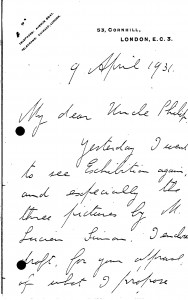 53, CORNHILL,
LONDON, E.C.3.
9 April 1931.
My dear Uncle Philip
Yesterday I went
to see Exhibition again,
and especially the
three pictures by M.
Lucien Simon. I enclose
draft, for your approval
of what I propose